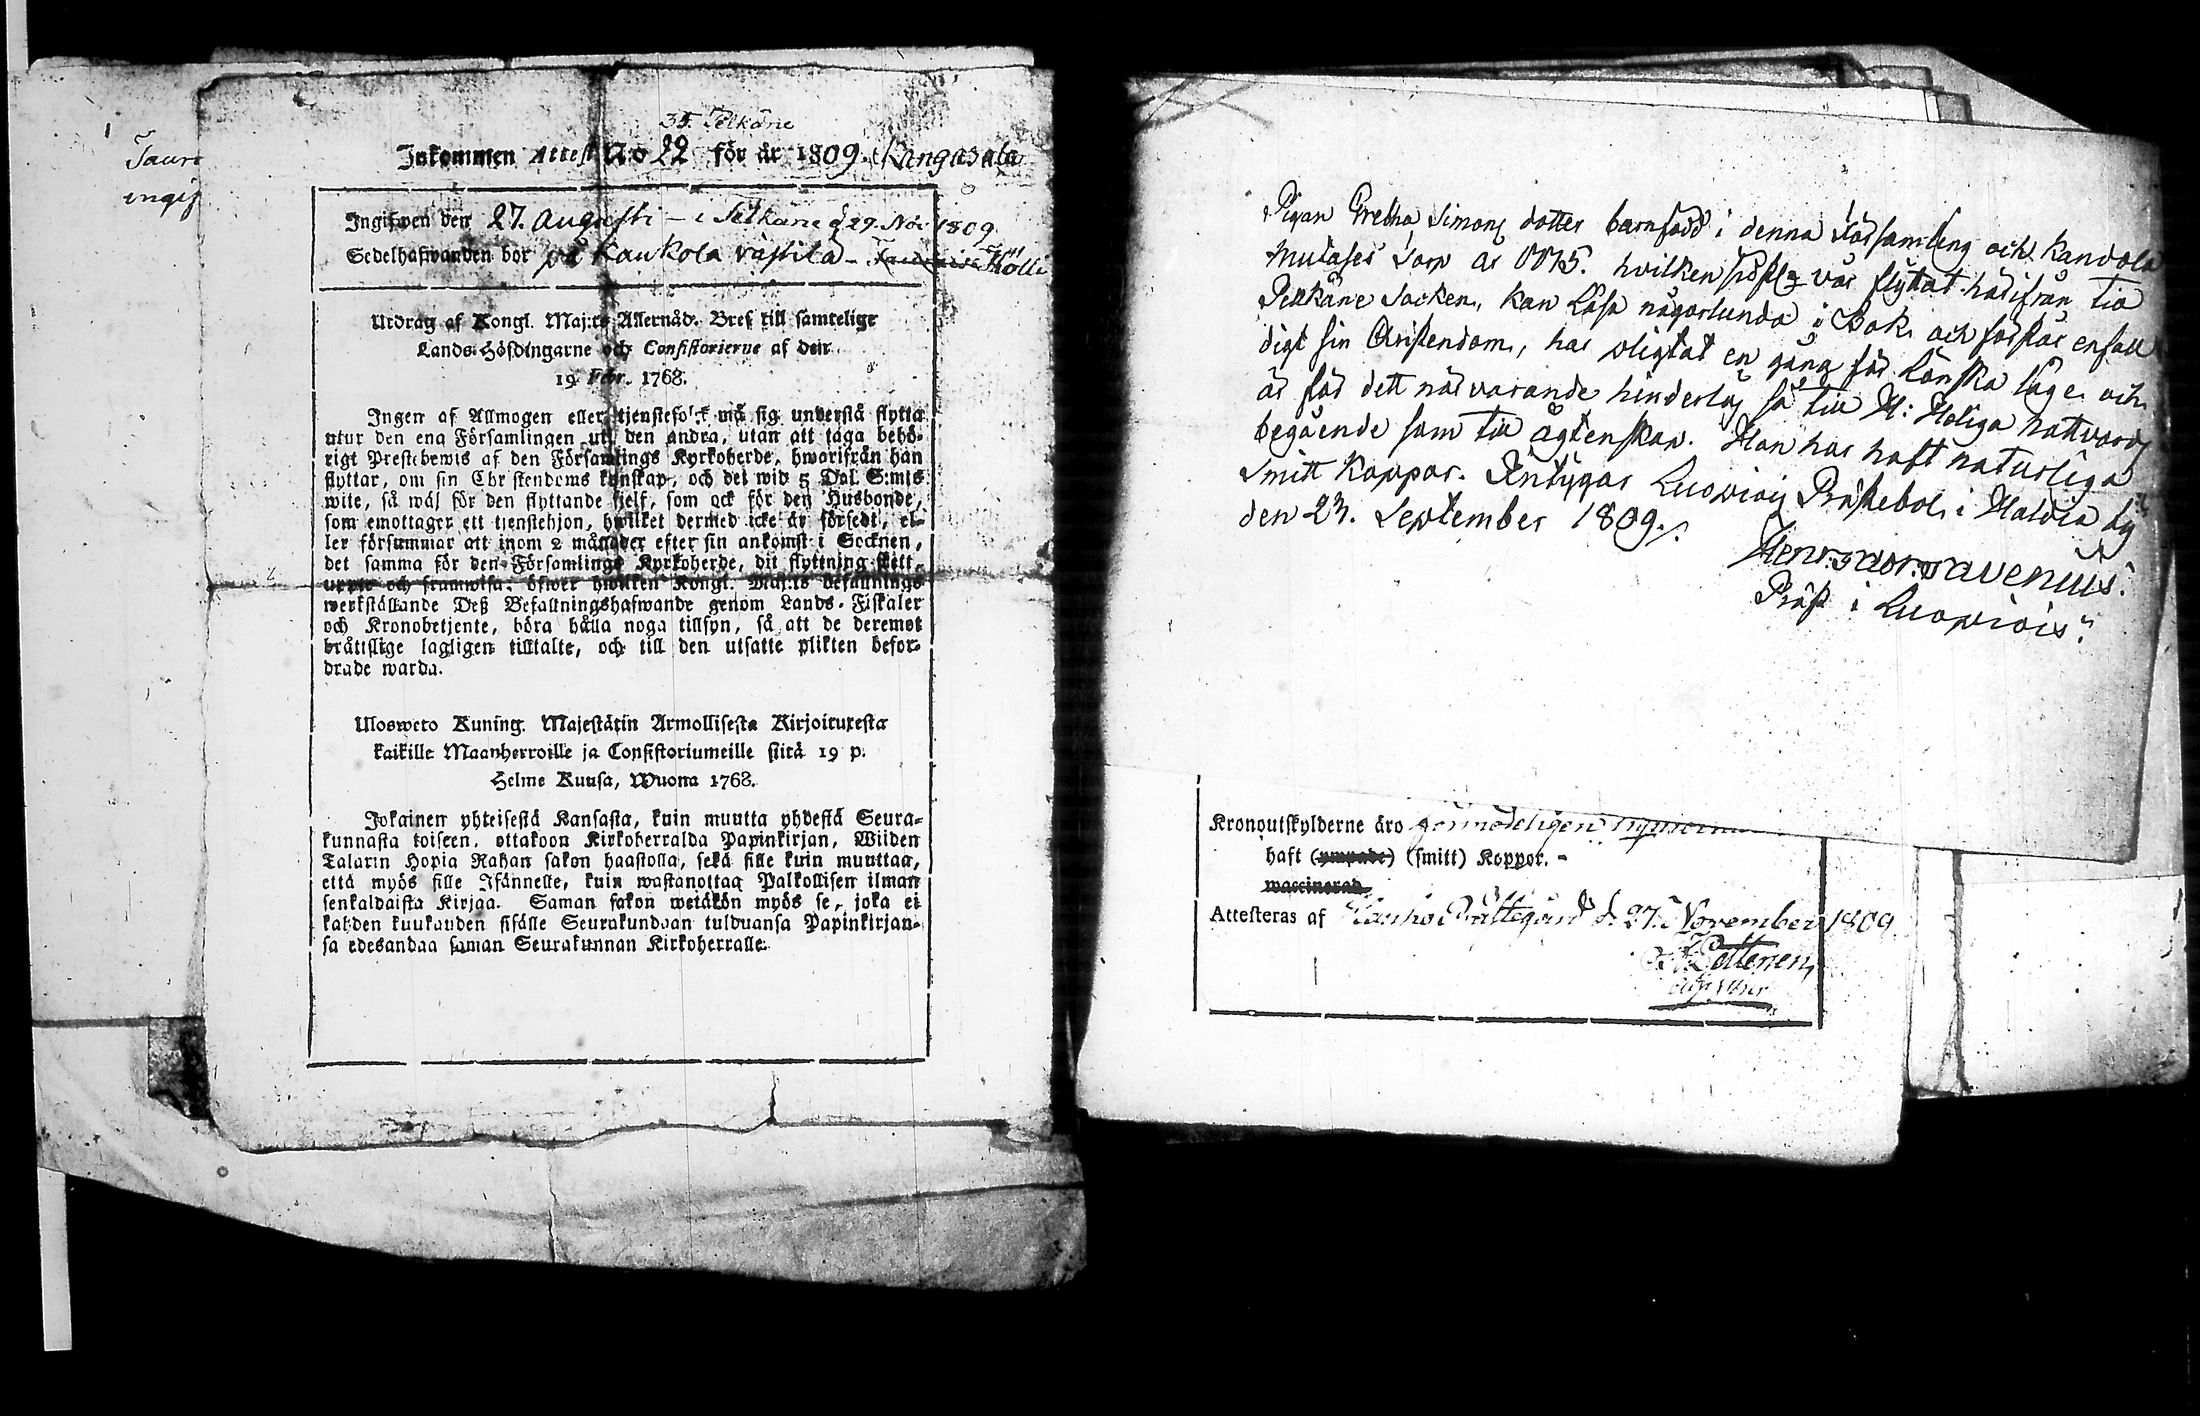 Taur
ingif
35. Pelkäne
Inkommen Attest No 22 för år 1809. Kangasala
Ingifwen den 27. Augusti - i Pelkäne d 29. Nov. 1809
Sedelhafwanden bor på Kaukola
Utdrag af Kongl. Maj:ts Allernåd. Bref till samtelige
Lands-Höfdingarne och Consistorierne af den
19 Febr. 1768.
Ingen af Allmogen eller tjenstefolck må sig understå flytta
utur den ena Församlingen uti den andra, utan att taga behö-
rigt Prestebewis af den Församlings Kyrkoherde, hwarifrån han
flyttar, om sin Christendoms kunskap, och det wid 5 Dal. S:mts
wite, så wäl för den flyttande sjelf, som ock för den Husbonde,
som emottager ett tjenstehjon, hwilket dermed icke är försedt, el-
ler försummar att inom 2 månader efter sin ankomst i Socknen,
det samma för den Församlings Kyrkoherde, dit flyttning skett,
uppte och framwisa; öfwer hwilken Kongl. Maj:ts befallnings
werkställande Deß Befallningshafwande genom Lands-Fiskaler
och Kronobetjente, böra hålla noga tillsyn, så att de deremot
bråttslige lagligen tilltalte, och till den utsatte plikten befor-
drade warda.
Ulosweto Kuning. Majestätin Armollisesta Kirjoituxesta
kaikille Maanherroille ja Consistoriumeille siitä 19 p.
Helme Kuusa, Wuona 1768.
Jokainen yhteisestä Kansasta, kuin muutta yhdestä Seura-
kunnasta toiseen, ottakoon Kirkoherralda Papinkirjan, Wiiden
Talarin Hopia Rahan sakon haastolla, sekä sille kuin muuttaa,
että myös sille Isännelle, kuin wastanottaa Palkollisen ilman
senkaldaista Kirjaa. Saman sakon wetäkön myös se, joka ei
kahden kuukauden sisälle Seurakundaan tulduansa Papinkirjan-
sa edesandaa saman Seurakunnan Kirkoherralle.
Pigan Gretha Simons dotter barnfödd i denna Församling och Kandola
Mutases Torp år hvilken var flyttat härifrån til
Pelkäne Socken, kan läsa någorlunda i Bok och förstår enfall
digt sin Christendom, har pligtat en gång för Lönska läge och
är för dett närvarande hinderlös så til H: Heliga nattvards
begående som til ägtenskap. Hon har haft naturliga
Smitt Koppor. Intygar Luopiois Prästebol i Haltia by
den 23. September 1809.
Avenius.
Präst i Luopiois.
Kronoutskylderne äro förmodeligen
haft (ympade) (smitt) Koppor. -
waccinerad
Attesteras af Prästegård d. 27. November 1809